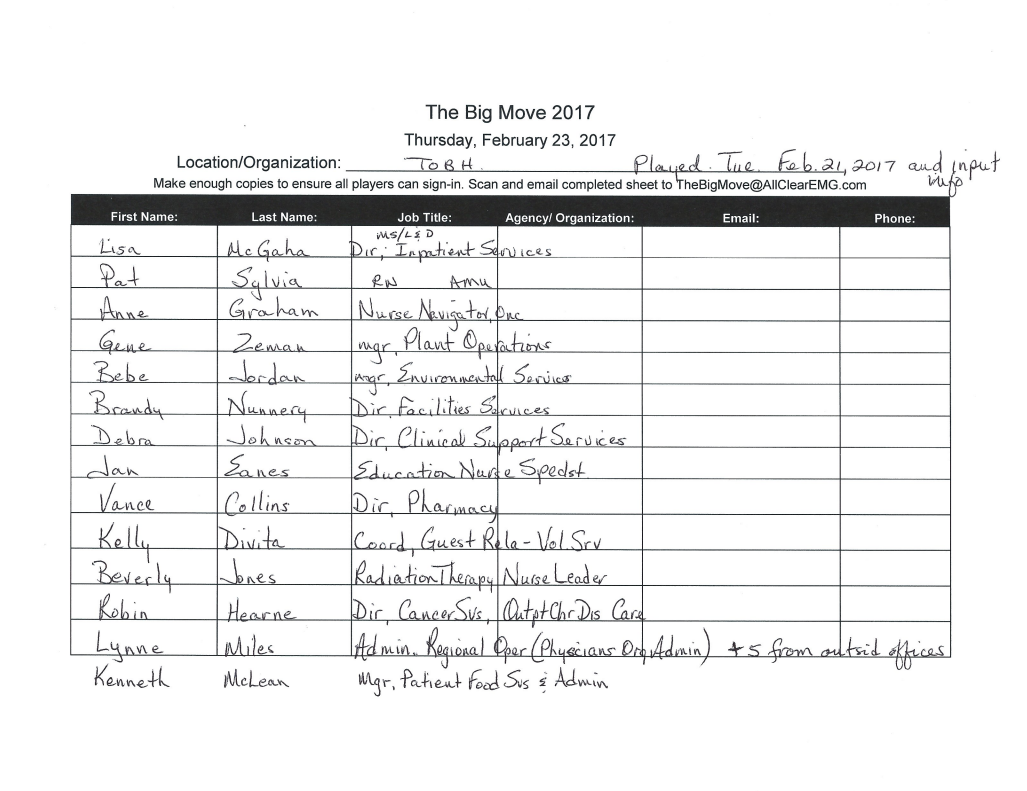 The Big Move 2017
Thursday, February 23, 2017
Location/Organization: TOBH. Played. Tue. Feb. 21, 2017 and input info
Make enough copies to ensure all players can sign-in. Scan and email completed sheet to TheBigMove@AllClearEMG.com
First Name: Last Name: Job Title: Agency/ Organization: Email: Phone:
MS/L&D
Lisa McGaha Dir, Inpatient Services
Pat Sylvia RN AMU
Anne Graham Nurse Navigator, Onc
Gene Zeman mgr, Plant Operations
Bebe Jordan mgr, Environmental Services
Brandy Nunnery Dir, Facilities Services
Debra Johnson Dir, Clinical Support Services
Jan Eanes Education Nurse Speclst
Vance Collins Dir, Pharmacy
Kelly Divita Coord, Guest Rela - Vol. Srv
Beverly Jones Radiation Therapy Nurse Leader
Robin Hearne Dir, Cancer Svs, Outpt Chr Dis Care
Lynne Miles Admin. Regional Oper (Physicians Org Admin) +5 from outsid offices
Kenneth McLean Mgr, Patient Food Svs & Admin